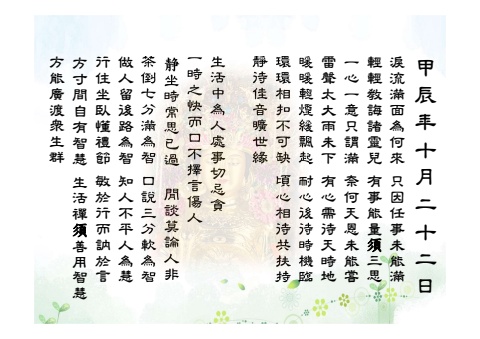 甲辰年十月二十二日
淚流滿面為何來　只因任事未能滿
輕輕教誨諸靈兒　有事能量須三思
一心一意只謂滿　奈何天恩未能嘗
雷聲太大雨未下　有心需待天時地
暖暖輕煙緩飄起　耐心後待時機臨
環環相扣不可缺　頃心相待共扶持
靜待佳音曠世緣
生活中為人處事切忌貪
一時之快而口不擇言傷人
靜坐時常思已過　閒談莫論人非
茶倒七分滿為智　口說三分軟為智
做人留後路為智　知人不平人為慧
行住坐臥懂禮節　敏於行而訥於言
方寸間自有智慧　生活禪須善用智慧
方能廣渡眾生群